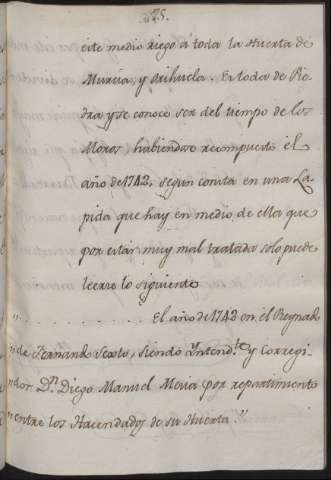 25.
este medio riego à toda la Huerta de
Murcia, y Orihuela. Es toda de Pie
dra y se conoce ser del tiempo de los
Moros, habiendose recompuesto èl
año de 1742, segun consta en una La
pida que hay en medio de ella que
por estar muy mal tratada solo puede
leerse lo siguiente
"........... El año de 1742 en el Reynado
"de Fernando Sexto, siendo Yntend.te y Corregi
"dor D.n Diego Manuel Mesia por repartimiento
"entre los Hacendados de su Huerta."